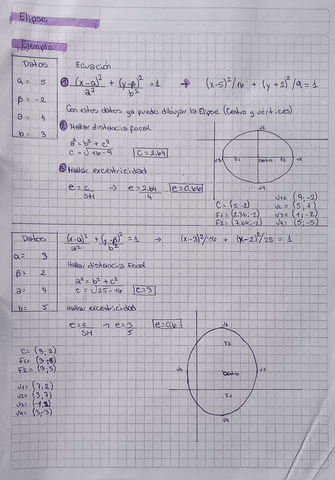 Elipse
Ejemplo
Datos
α= 5
β= -2
a= 4
b= 3
Ecuación
(x-α)²/a² + (y-β)²/b² = 1 → (x-5)²/16 + (y+2)²/9 = 1
Con estos datos ya puedo dibujar la Elipse (Centro y vértices)
Hallar distancia focal
a² = b² + c²
c = √16-9 C = 2.64
Hallar excentricidad
e = c/SM → e = 2.64/4 e = 0,66
V1
V2
V3
V4
F1
F2
Centro
C = (5,-2)
F1 = (2.36,-2)
F2 = (7.64,-2)
V1 = (9,-2)
V2 = (5,1)
V3 = (1,-2)
V4 = (5,-5)
Datos
α= 3
β= 2
a= 4
b= 5
(x-α)²/a² + (y-β)²/b² = 1 → (x-3)²/16 + (x-2)²/25 = 1
Hallar distancia Focal
a² = b² + c²
c = √25-16 C = 3
Hallar excentricidad
e = c/SM → e = 3/5 e = 0,6
C = (3,2)
F2 = (3,5)
V1 = (7,2)
V2 = (3,7)
V4 = (3,-3)
V2
F2
Centro
V3
V1
F1
V4